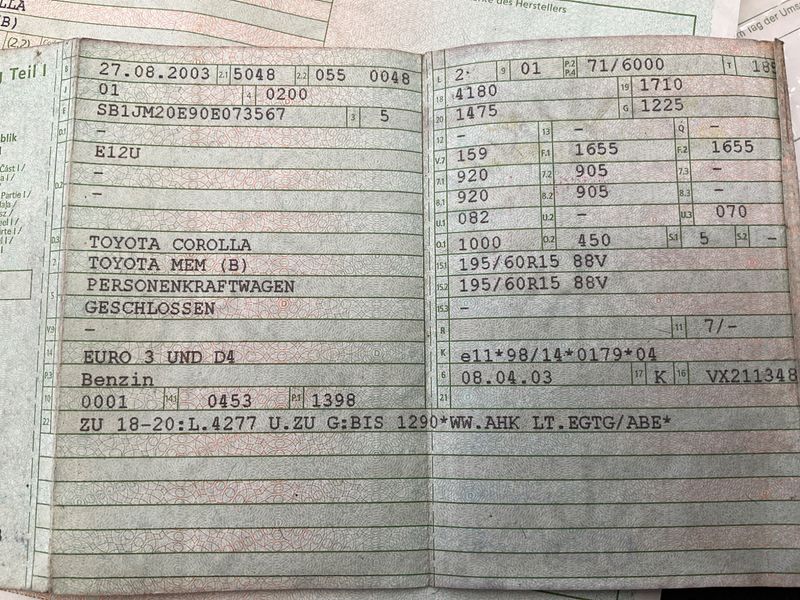 LLA
B)
(2.2)
ke des Herstellers
m Tag der Ums
g Teil I
blik
Část I /
Partie I /
B 27.08.2003 2.1 5048 2.2 055 0048
J 01 4 0200
E SB1JM20E90E073567 3 5
D.1 –
E12U
D.2 –
–
D.3 TOYOTA COROLLA
2 TOYOTA MEM (B)
5 PERSONENKRAFTWAGEN
GESCHLOSSEN
V.9 –
14 EURO 3 UND D4
P.3 Benzin
10 0001 14.1 0453 P.1 1398
22 ZU 18-20:L.4277 U.ZU G:BIS 1290*WW.AHK LT.EGTG/ABE*
L 2· 9 01 P.2 P.4 71/6000 T 185
18 4180 19 1710
20 1475 G 1225
12 – 13 – Q –
V.7 159 F.1 1655 F.2 1655
7.1 920 7.2 905 7.3 –
8.1 920 8.2 905 8.3 –
U.1 082 U.2 – U.3 070
O.1 1000 O.2 450 S.1 5 S.2 –
15.1 195/60R15 88V
15.2 195/60R15 88V
15.3 –
R 11 7/–
K e11*98/14*0179*04
6 08.04.03 17 K 16 VX211348
21